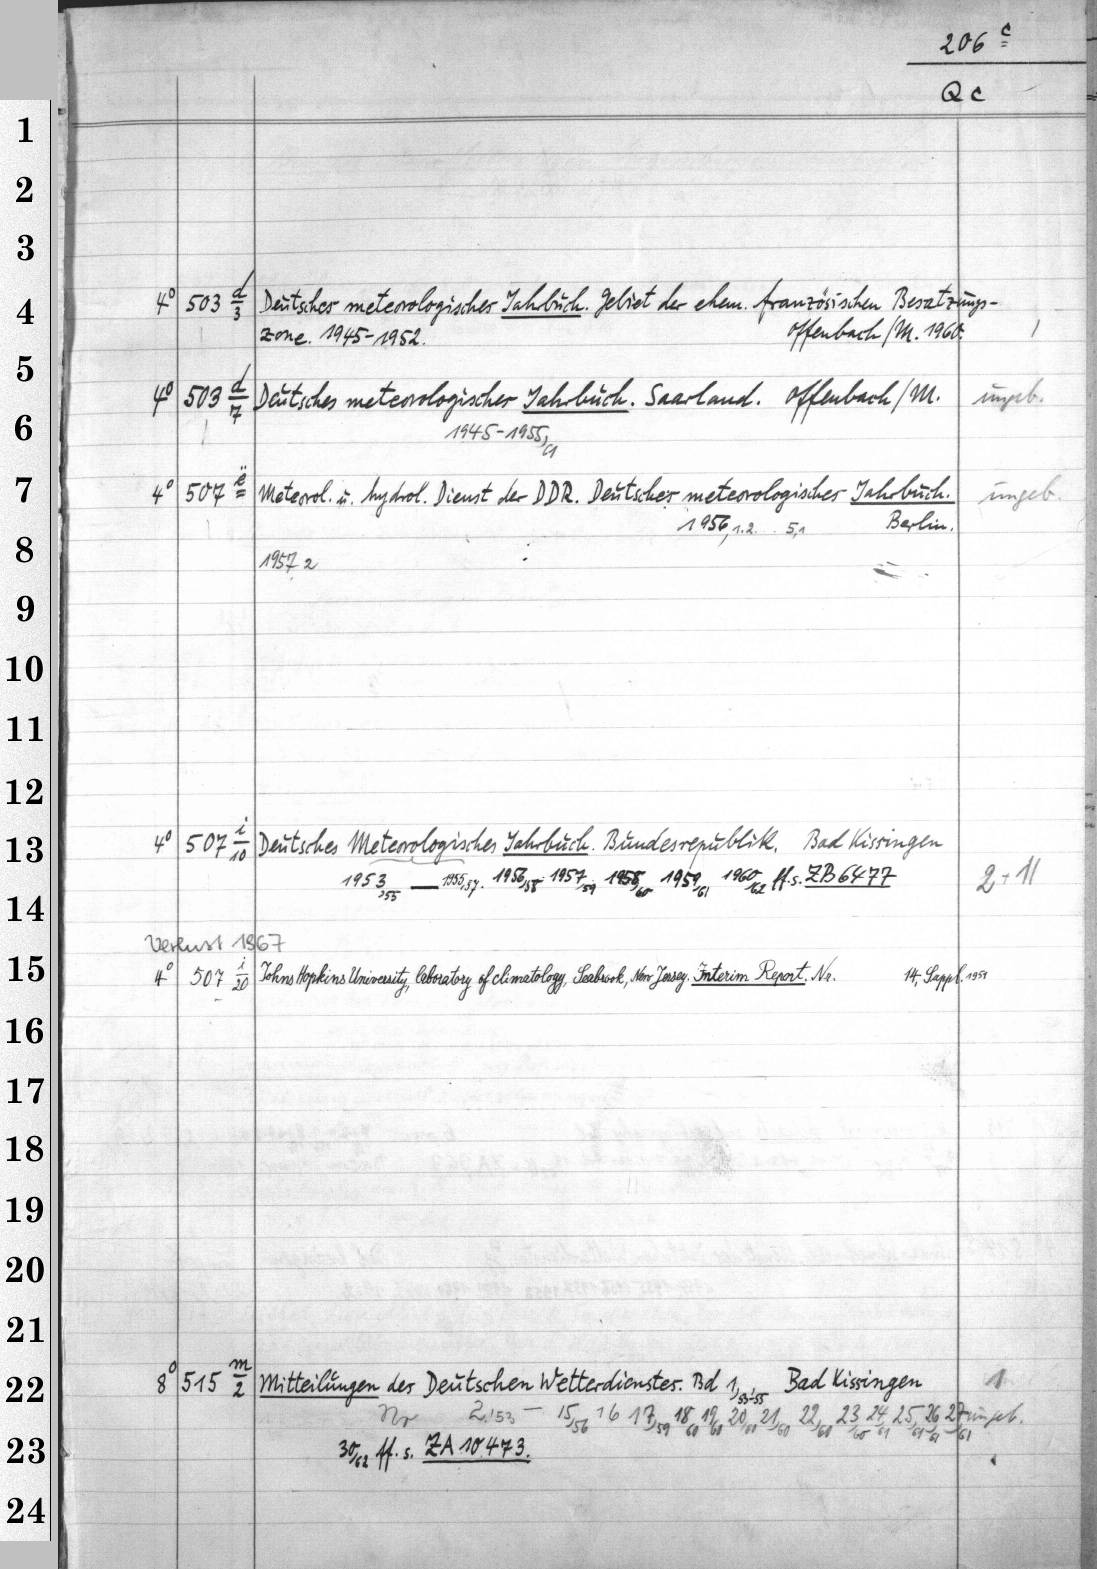 206 c
Qc
1
2
3
4
4° 503 d/3 Deutsches meteorologisches Jahrbuch. Gebiet der ehem. französischen Besatzungs-
zone. 1945-1952. Offenbach/M. 1960. 1
5
4° 503 d/7 Deutsches meteorologisches Jahrbuch. Saarland. Offenbach/M. ungeb.
6
1945-1955,
7
4° 507 ë Meteorol. u. hydrol. Dienst der DDR. Deutsches meteorologisches Jahrbuch. ungeb.
1956,1.2. 5,1 Berlin.
8
1957 2
9
10
11
12
13
4° 507 i/10 Deutsches Meteorologisches Jahrbuch. Bundesrepublik. Bad Kissingen
1953,55 — 1955,57. 1956,58 1957,59 1958,60 1959,61 1960,62 ff. s. ZB 6477 2 + 11
14
Verlust 1967
15
4° 507 i/20 Johns Hopkins University, laboratory of climatology, Seabrook, New Jersey. Interim Report. Nr. 14, Suppl. 1951
16
17
18
19
20
21
22
8° 515 m/2 Mitteilungen des Deutschen Wetterdienstes. Bd 1,53-55 Bad Kissingen 1
Nr 2,'53 — 15,56 16 17,59 18,60 19,60 20,60 21,60 22,60 23,60 24,61 25,61 26,61 27,61 ungeb.
23
30,62 ff. s. ZA 10473.
24